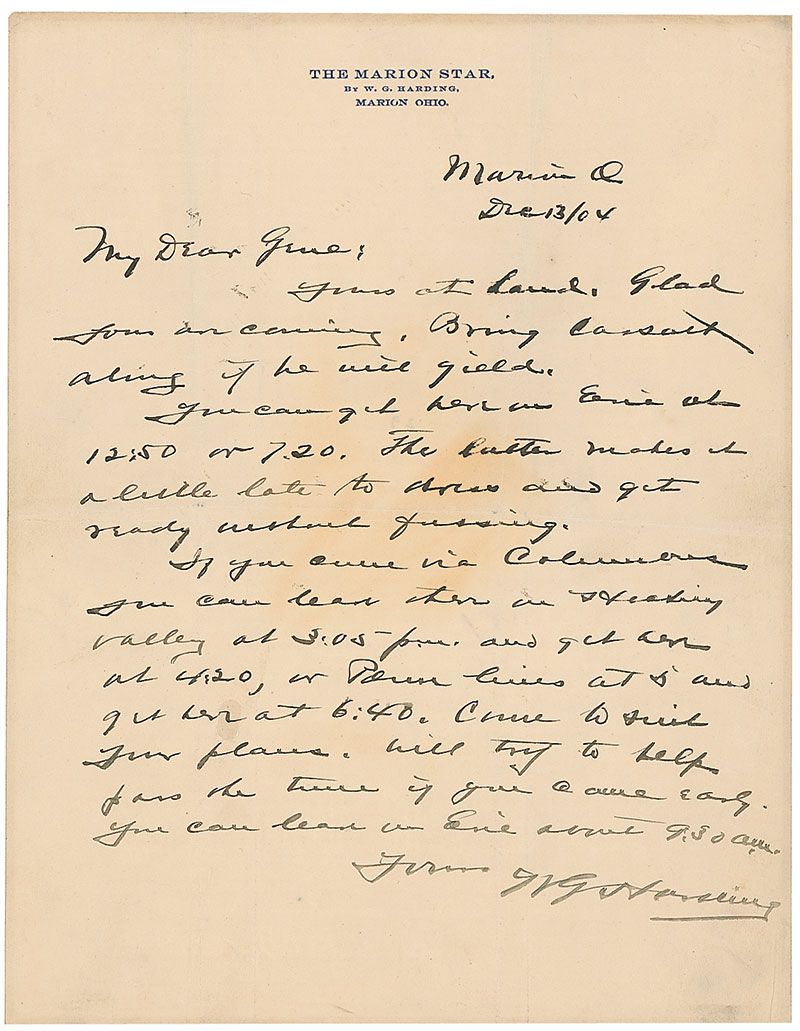 THE MARION STAR,
BY W. G. HARDING,
MARION OHIO.
Marion O
Dec 13/04
My Dear Gene:
Yours at hand. Glad
you are coming. Bring Cassatt
along if he will yield.
You can get here on Erie at
12:50 or 7.20. The latter makes it
a little late to dress and get
ready without fussing.
If you come via Columbus
you can leave there on Hocking
Valley at 3:05 p.m. and get here
at 4:20, or Penn lines at 5 and
get here at 6:40. Come to suit
your plans. Will try to help
pass the time if you come early.
You can leave on Erie about 9:30 am.
Yours WG Harding